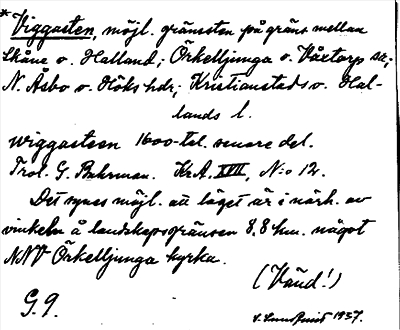 * Viggasten, möjl. gränssten på gräns mellan
Skåne o. Halland; Örkelljunga o. Våxtorp sn;
N. Åsbo o. Höks hdr; Kristianstads o. Hal-
lands l.
wiggasteen 1600-tal. senare del.
Trol. G. Buhrman. KrA. XVII, N:o 12.
Det synes möjl. att läget är i närh. av
vinkeln å landskapsgränsen 8,8 km. något
NNV Örkelljunga kyrka.
(Vänd!)
G. 9.
1937.